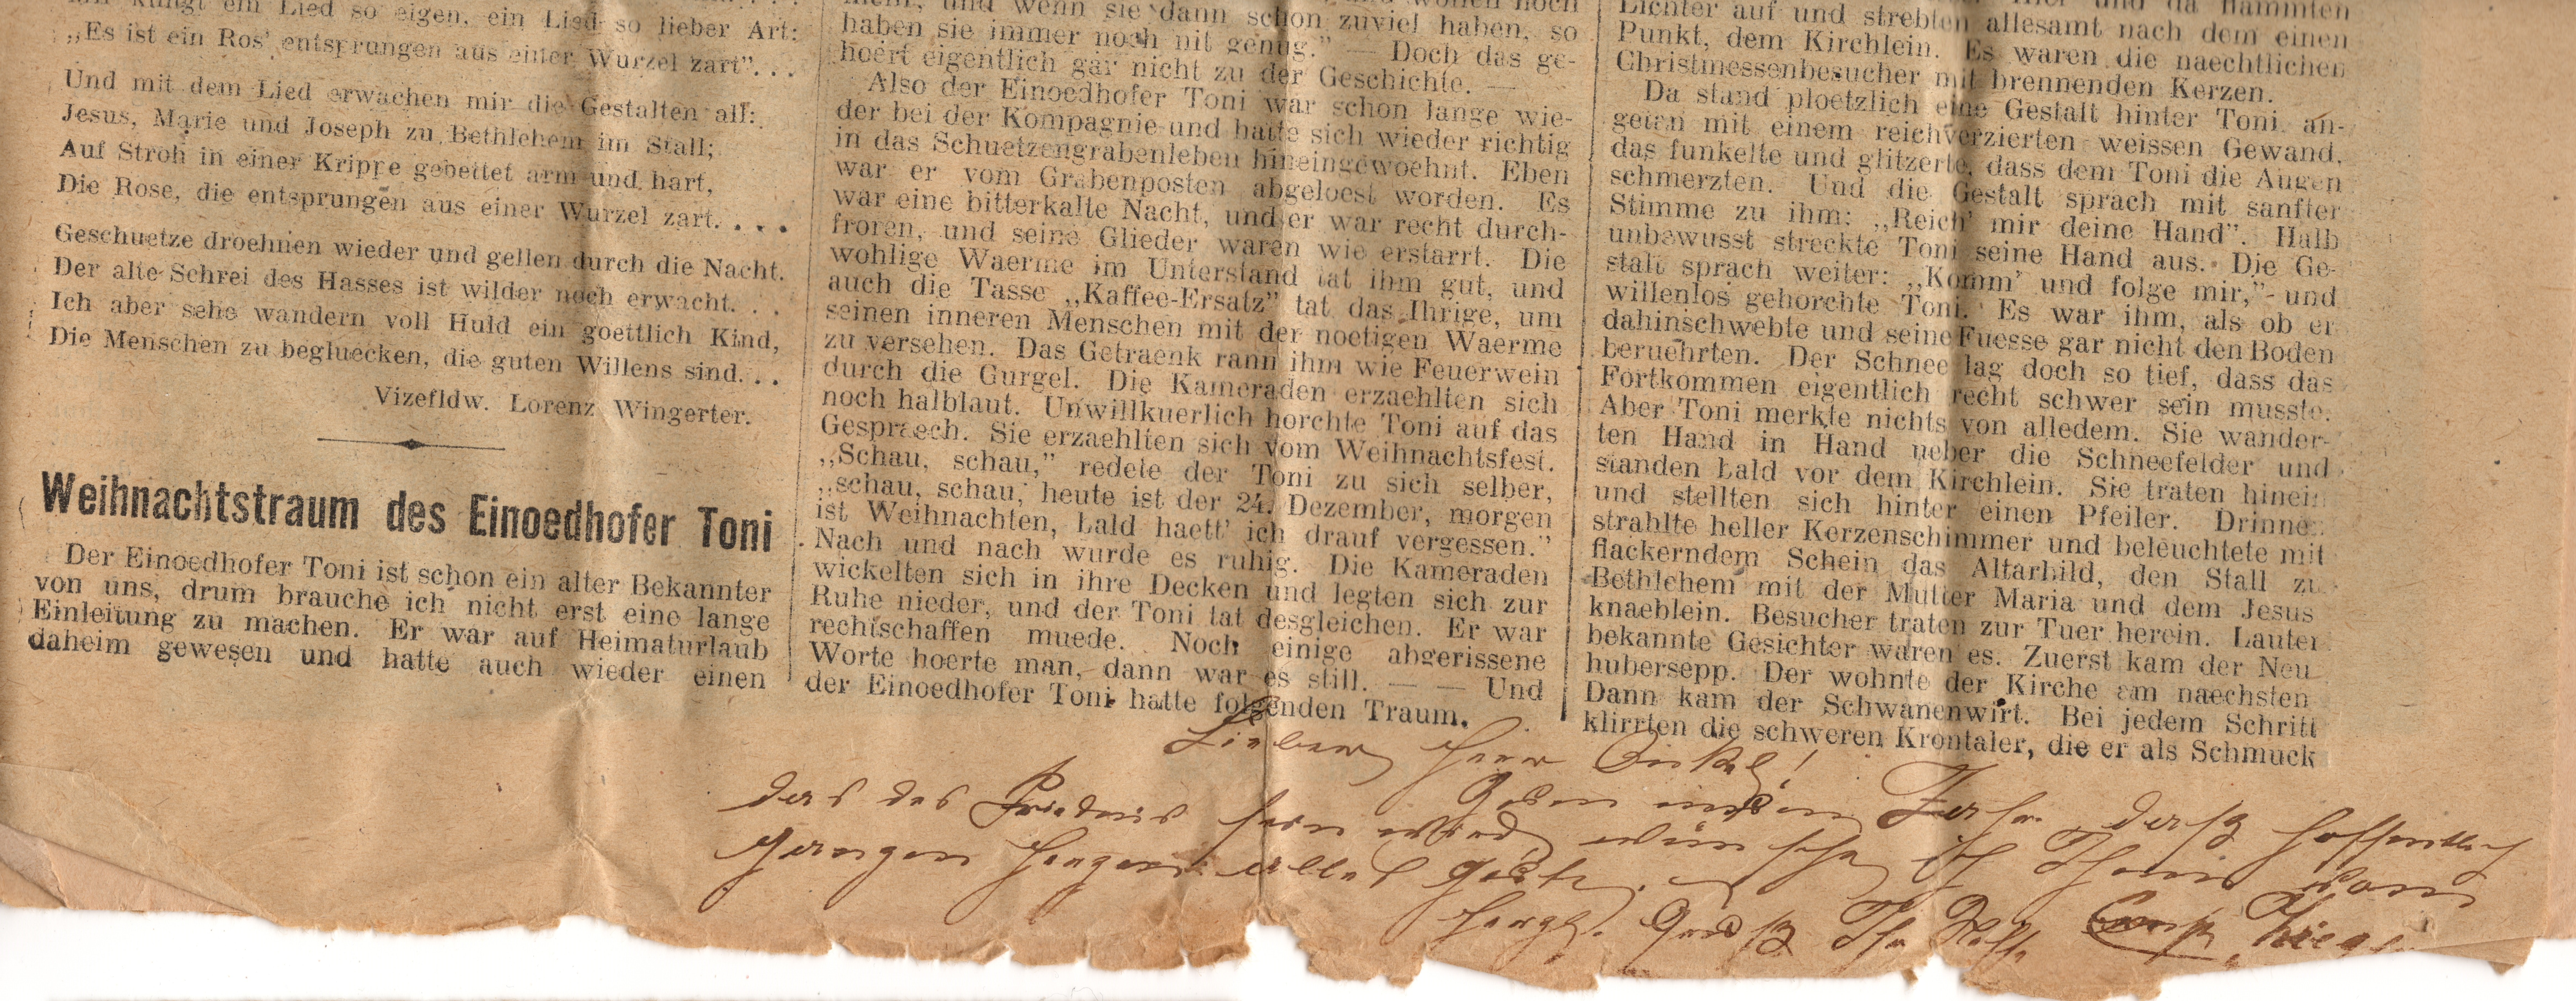 klingt ein Lied so eigen, ein Lied so lieber Art:
„Es ist ein Ros' entsprungen aus einer Wurzel zart”. . .
Und mit dem Lied erwachen mir die Gestalten all:
Jesus, Marie und Joseph zu Bethlehem im Stall;
Auf Stroh in einer Krippe gebettet arm und hart,
Die Rose, die entsprungen aus einer Wurzel zart. . . .
Geschuetze droehnen wieder und gellen durch die Nacht.
Der alte Schrei des Hasses ist wilder noch erwacht. . .
Ich aber sehe wandern voll Huld ein goettlich Kind,
Die Menschen zu begluecken, die guten Willens sind. . .
Vizefldw. Lorenz Wingerter.
Weihnachtstraum des Einoedhofer Toni
Der Einoedhofer Toni ist schon ein alter Bekannter
von uns, drum brauche ich nicht erst eine lange
Einleitung zu machen. Er war auf Heimaturlaub
daheim gewesen und hatte auch wieder einen
und wenn sie dann schon zuviel haben, so
haben sie immer noch nit genug.” — Doch das ge-
hoert eigentlich gar nicht zu der Geschichte. —
Also der Einoedhofer Toni war schon lange wie-
der bei der Kompagnie und hatte sich wieder richtig
in das Schuetzengrabenleben hineingewoehnt. Eben
war er vom Grabenposten abgeloest worden. Es
war eine bitterkalte Nacht, und er war recht durch-
froren, und seine Glieder waren wie erstarrt. Die
wohlige Waerme im Unterstand tat ihm gut, und
auch die Tasse „Kaffee-Ersatz” tat das Ihrige, um
seinen inneren Menschen mit der noetigen Waerme
zu versehen. Das Getraenk rann ihm wie Feuerwein
durch die Gurgel. Die Kameraden erzaehlten sich
noch halblaut. Unwillkuerlich horchte Toni auf das
Gespraech. Sie erzaehlten sich vom Weihnachtsfest.
„Schau, schau,” redete der Toni zu sich selber,
„schau, schau, heute ist der 24. Dezember, morgen
ist Weihnachten, bald haett' ich drauf vergessen.”
Nach und nach wurde es ruhig. Die Kameraden
wickelten sich in ihre Decken und legten sich zur
Ruhe nieder, und der Toni tat desgleichen. Er war
rechtschaffen muede. Noch einige abgerissene
Worte hoerte man, dann war es still. — — Und
der Einoedhofer Toni hatte folgenden Traum.
Lichter auf und strebten allesamt nach dem einen
Punkt, dem Kirchlein. Es waren die naechtlichen
Christmessenbesucher mit brennenden Kerzen.
Da stand ploetzlich eine Gestalt hinter Toni, an-
getan mit einem reichverzierten weissen Gewand,
das funkelte und glitzerte, dass dem Toni die Augen
schmerzten. Und die Gestalt sprach mit sanfter
Stimme zu ihm: „Reich' mir deine Hand”. Halb
unbewusst streckte Toni seine Hand aus. Die Ge-
stalt sprach weiter: „Komm' und folge mir,” und
willenlos gehorchte Toni. Es war ihm, als ob er
dahinschwebte und seine Fuesse gar nicht den Boden
beruehrten. Der Schnee lag doch so tief, dass das
Fortkommen eigentlich recht schwer sein musste.
Aber Toni merkte nichts von alledem. Sie wander-
ten Hand in Hand ueber die Schneefelder und
standen bald vor dem Kirchlein. Sie traten hinein
und stellten sich hinter einen Pfeiler. Drinnen
strahlte heller Kerzenschimmer und beleuchtete mit
flackerndem Schein das Altarbild, den Stall zu
Bethlehem mit der Mutter Maria und dem Jesus
knaeblein. Besucher traten zur Tuer herein. Lauter
bekannte Gesichter waren es. Zuerst kam der Neu
hubersepp. Der wohnte der Kirche am naechsten
Dann kam der Schwanenwirt. Bei jedem Schritt
klirrten die schweren Krontaler, die er als Schmuck
Lieber Herr
Zum neuen Jahr, daß hoffentlich
das des Friedens sein wird, wünsche ich Ihnen von
ganzen Herzen alles Gute.
Herzl. Gruß Ihr